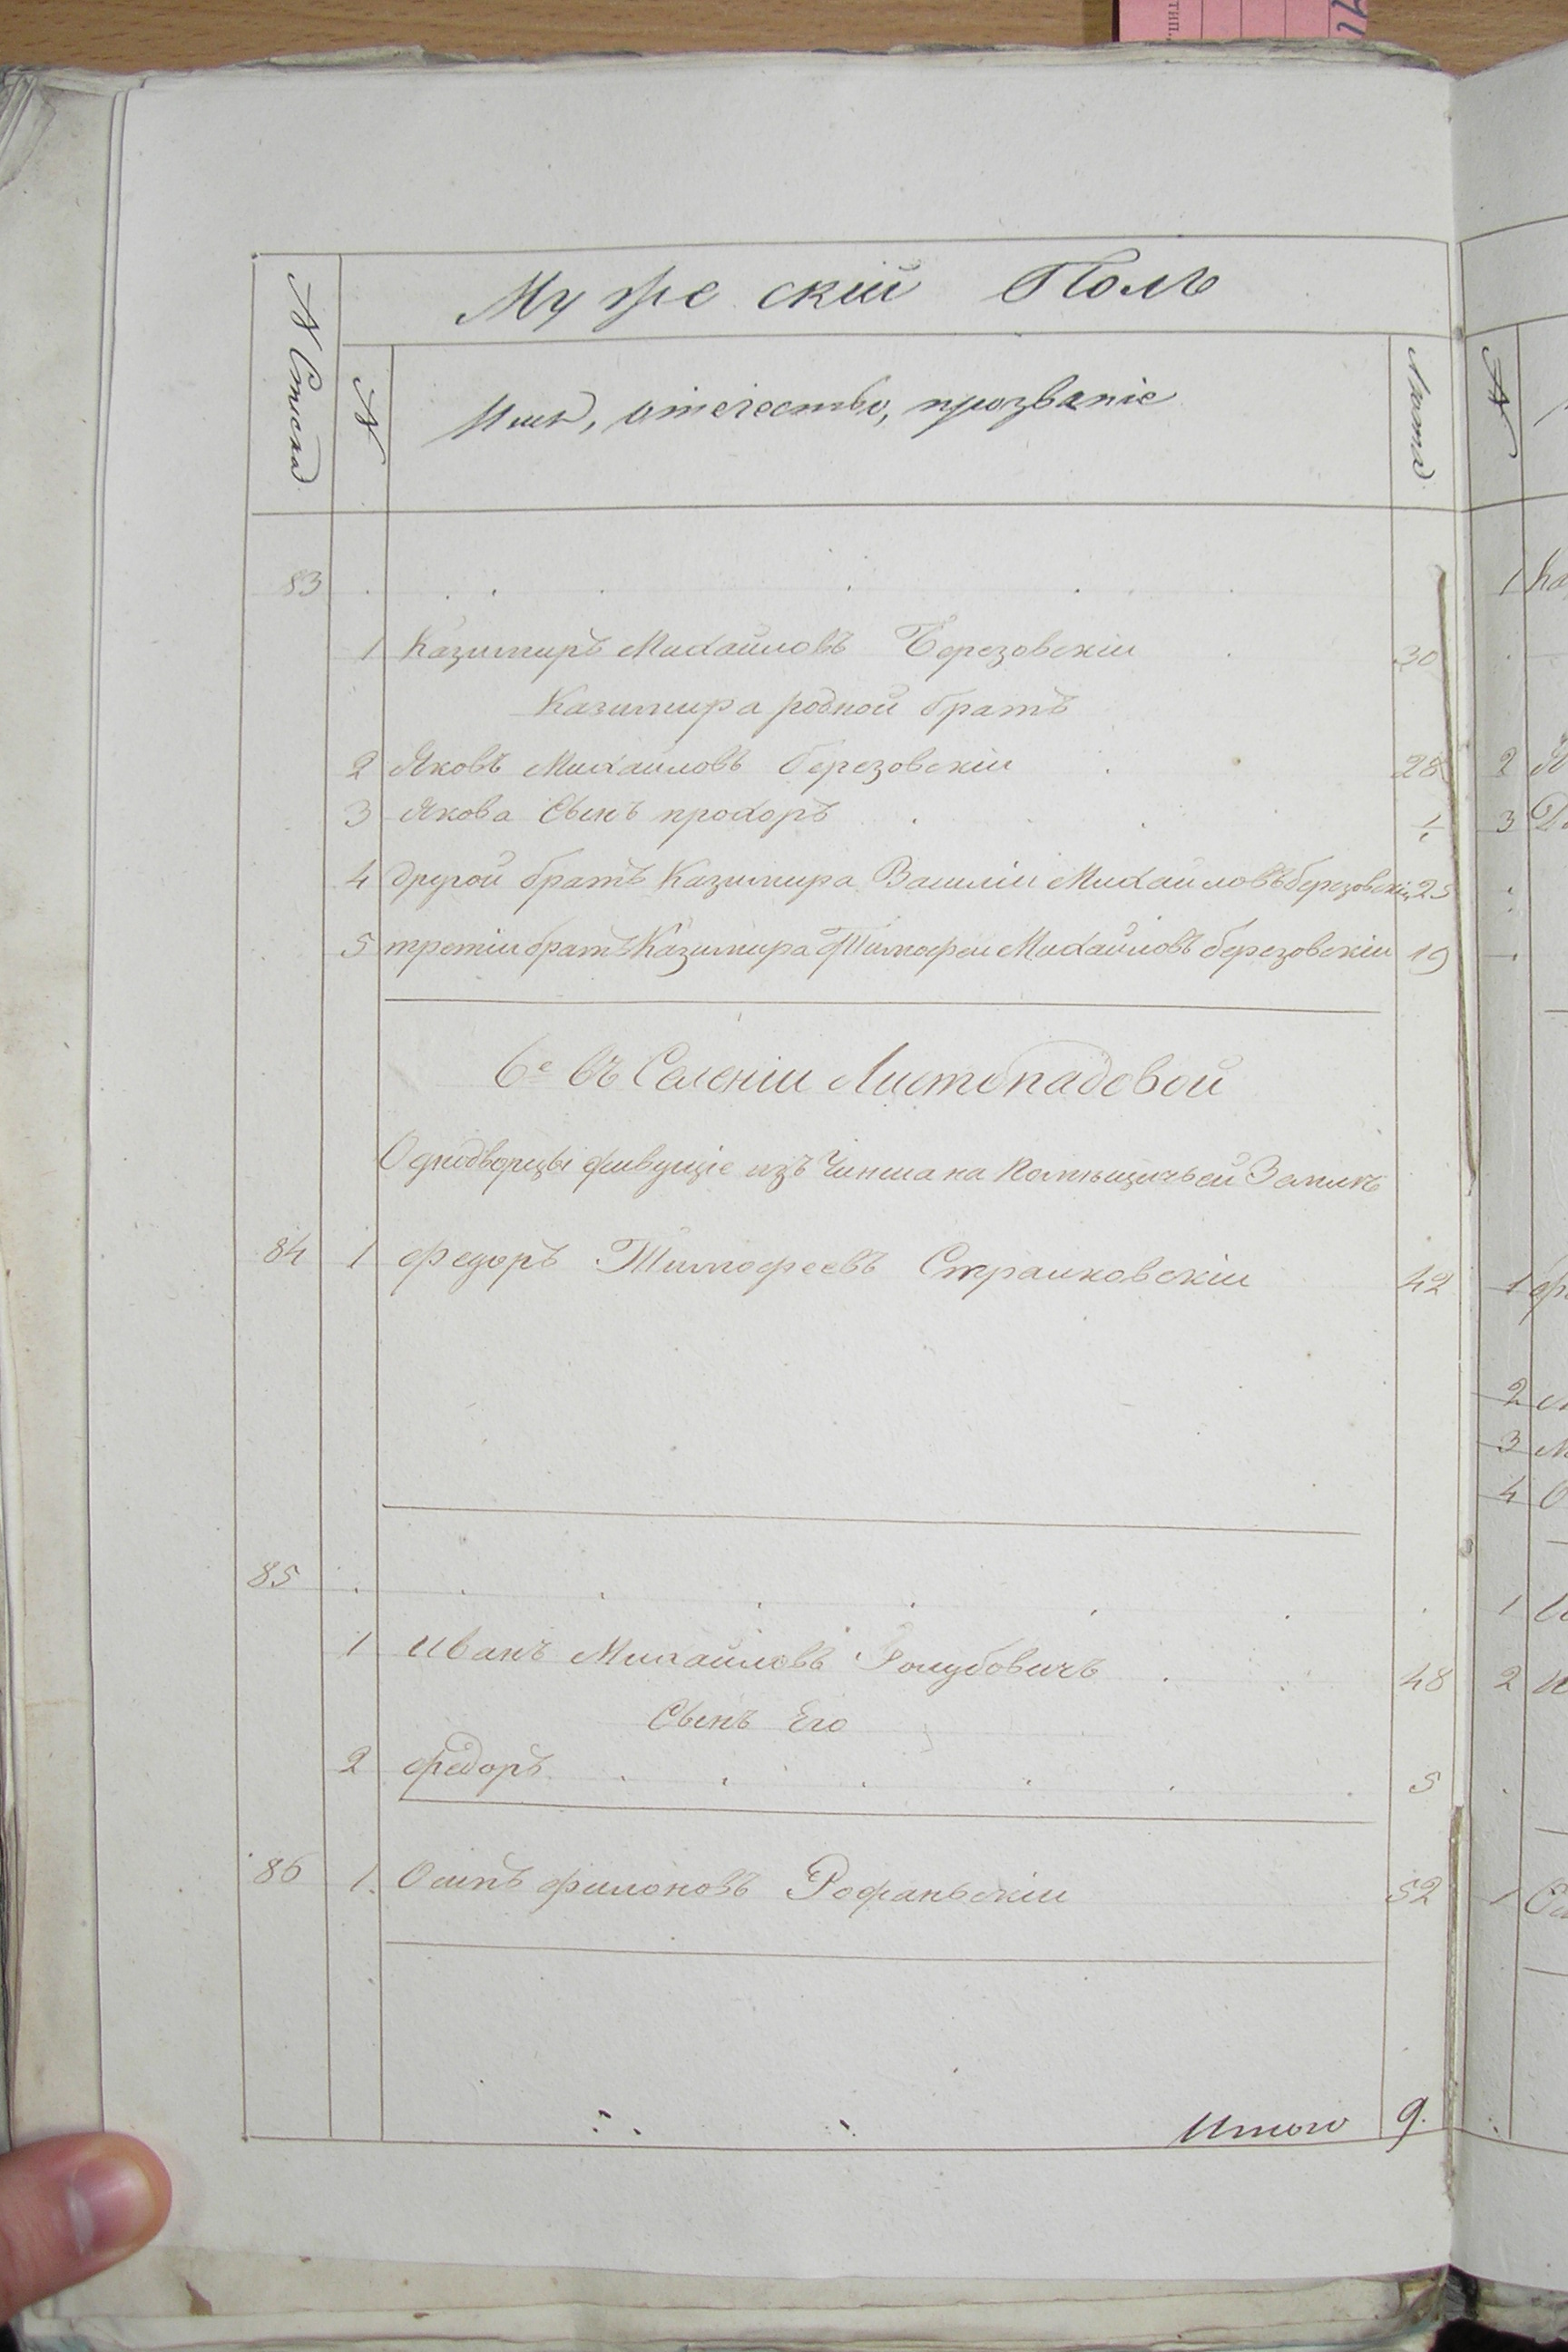 Мужескій Полъ
№ Списка
№
Имя, отечество, прозваніе
Лѣта
№
83
1 Казимиръ Михайловъ Березовскіи 30
Казимира родной братъ
2 Яковъ Михаиловъ березовскіи 28
3 Якова Сынъ прохоръ
4 другой братъ Казимира Василіи Михаиловъ березовскіи 25
5 третіи братъ Казимира Тимофеи Михайловъ березовскіи 19
6е въ Селеніи Листопадовой
Однодворцы живущіе изъ Чинша на Помѣщичьей Землѣ
84 1 федоръ Тимофеевъ 42
85
1 Иванъ Михайловъ Голубовичъ 48
Сынъ Его
2 федоръ 5
86 1 Осипъ филоновъ 52
Итого 9.